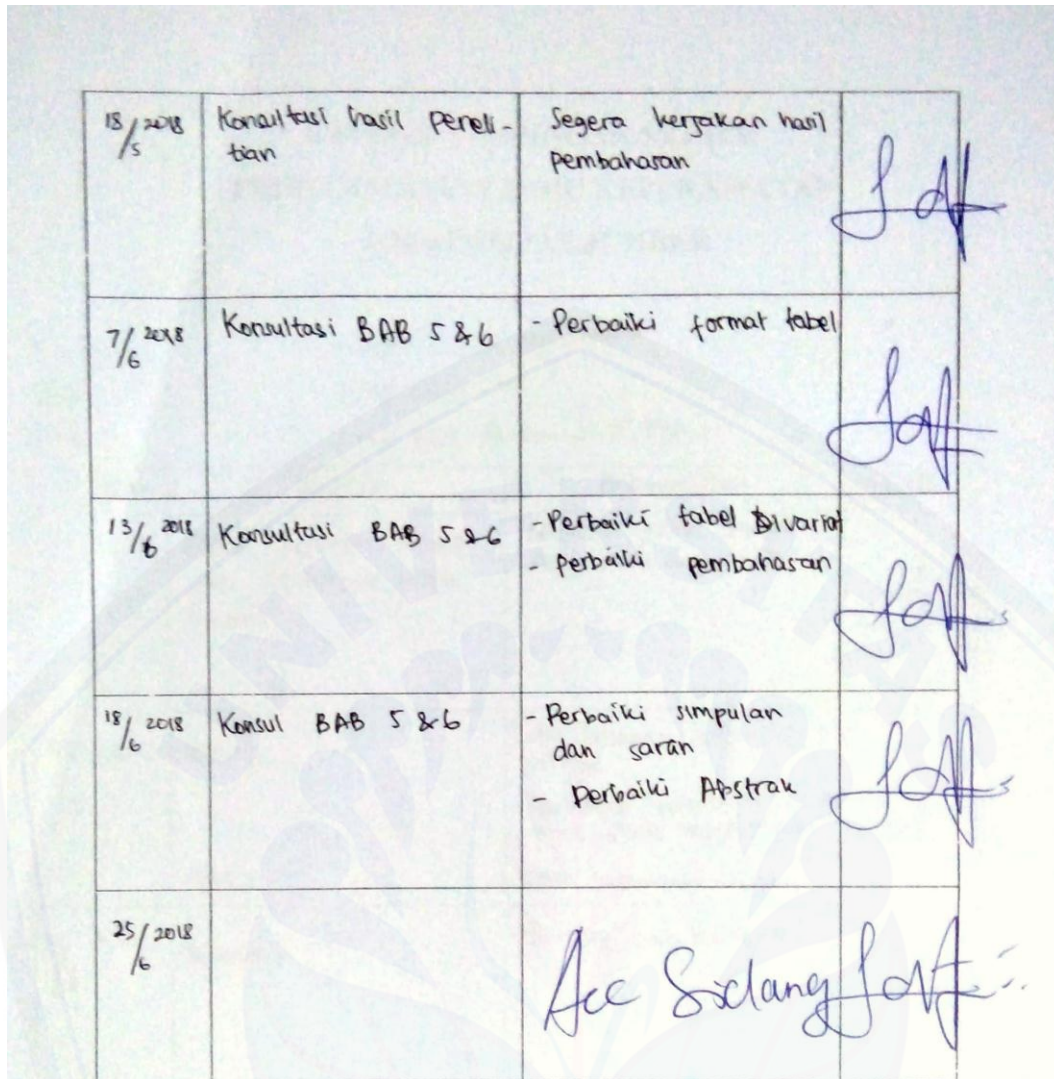 18/5 2018
Konsultasi hasil peneli-
tian
Segera kerjakan hasil
pembahasan
7/6 2018
Konsultasi BAB 5 & 6
- Perbaiki format tabel
13/6 2018
Konsultasi BAB 5 & 6
- Perbaiki tabel Bivariat
- perbaiki pembahasan
18/6 2018
Konsul BAB 5 & 6
- Perbaiki simpulan
dan saran
- Perbaiki Abstrak
25/6 2018
Acc Sidang
UNIVERSITAS